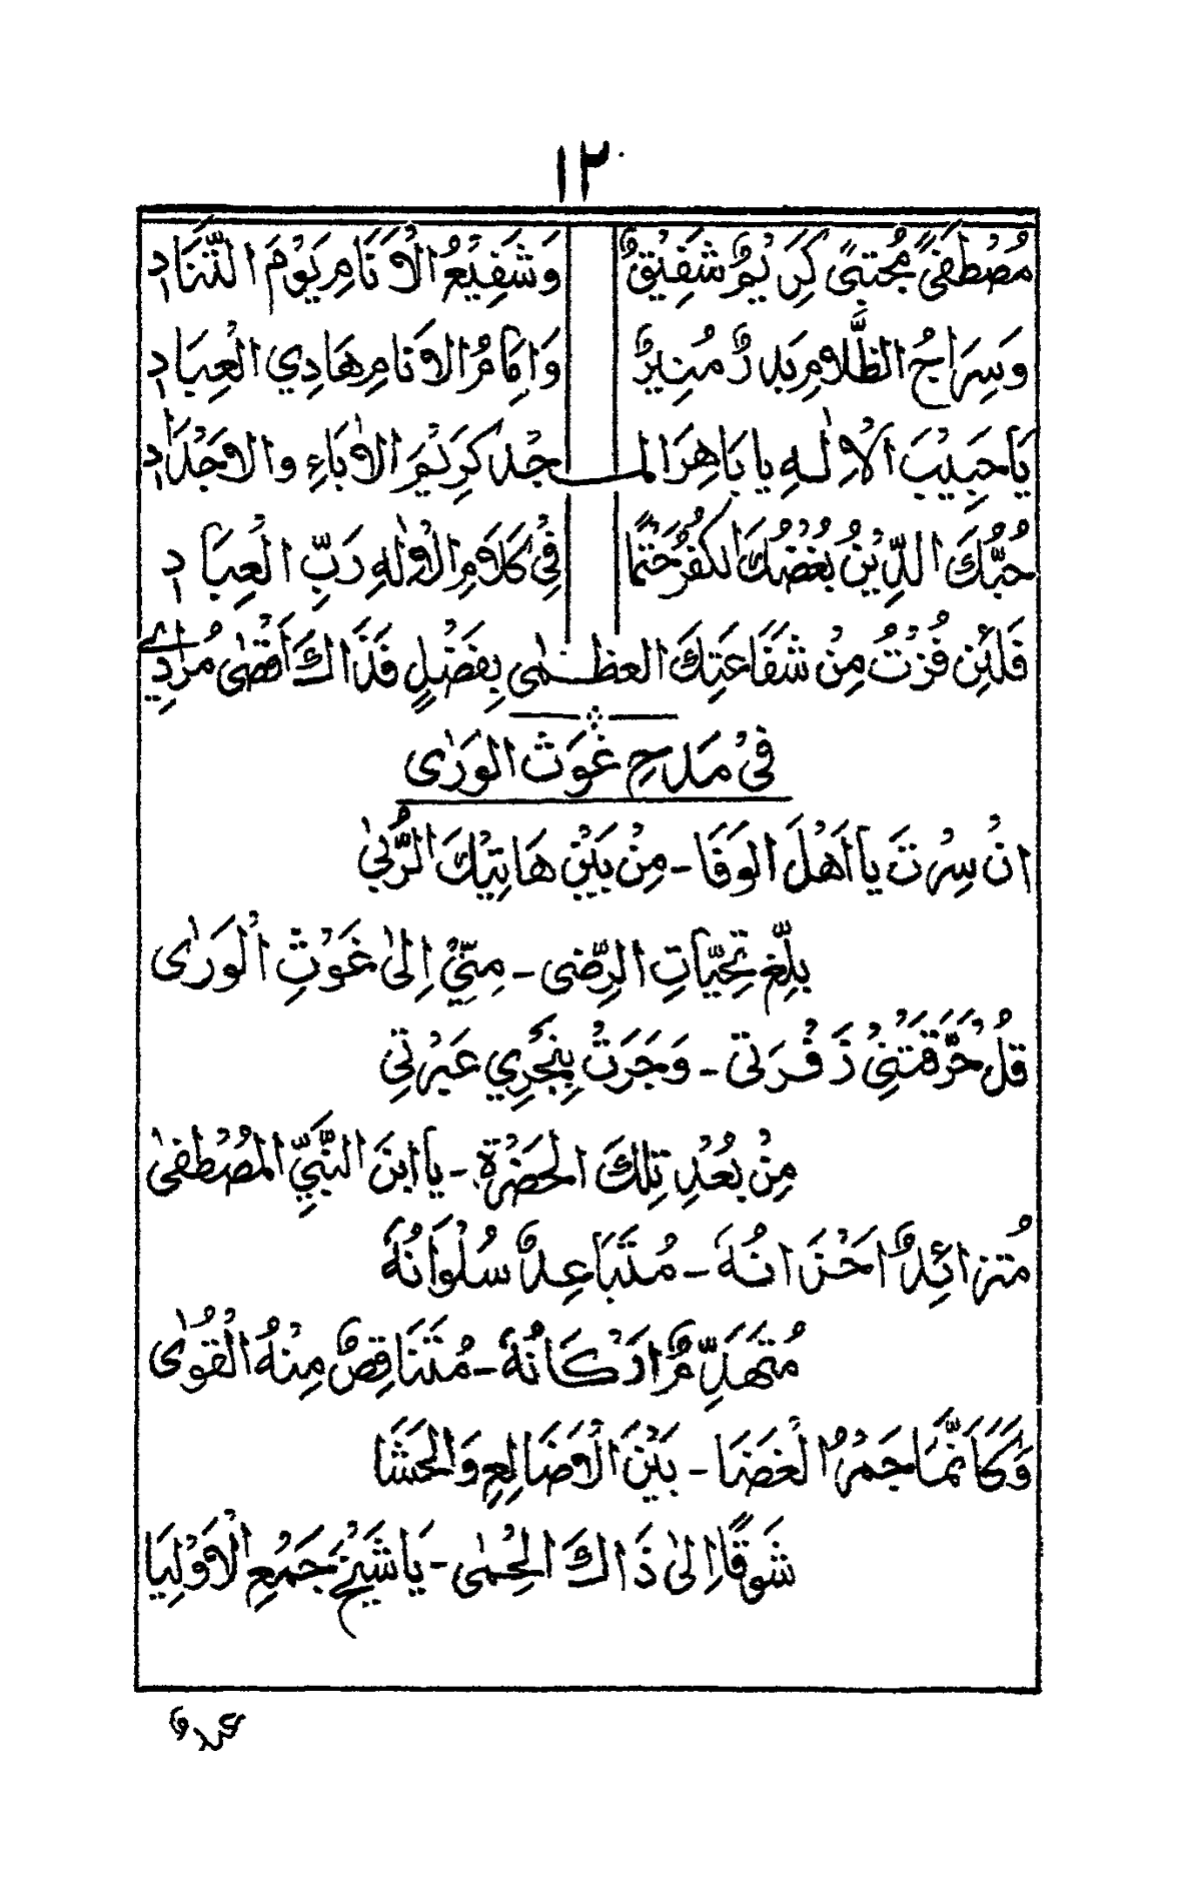 ١٢
مُصْطَفًى مُجْتَبًى كَرِيْمٌ شَفِيْقٌ وَشَفِيْعُ الْأَنَامِ يَوْمَ التَّنَادِ
وَسِرَاجُ الظَّلَامِ بَدْرٌ مُنِيرٌ وَاِمَامُ الْأَنَامِ هَادِي الْعِبَادِ
يَا حَبِيْبَ الْاِلٰهِ يا بَاهِرَ المـجْدِ كَرِيْمَ الْاٰبَاءِ والْاَجْدَادِ
حُبُّكَ الدِّيْنُ بُغْضُكَ الْكُفْرُ حَتْمًا فِيْ كَلَامِ الْاِلٰهِ رَبِّ الْعِبَادِ
فَلَئِن فُزْتُ مِنْ شَفَاعَتِكَ العظـمٰى بِفَضْلٍ فَذَاكَ اَقْصٰى مُرَادِيْ
فِيْ مَدْحِ غَوَثْ الوَرٰى
انْ سِرْتَ يا اَهْلَ الوَفَا - مِنْ بَيْنِ هَاتِيْكَ الرُّبٰى
بلِّغ تَحِيّاتِ الرِّضى - مِنِّيْ اِلىٰ غَوْثِ الْوَرٰى
قُلْ حَرَّقَتْنِيْ زَفْرَتي - وَجَرَتْ بِنَجْرِي عَبْرَتِي
مِنْ بُعْدِ تِلْكَ الحَضْرَةِ - يا ابنَ النَّبِيِّ المُصْطَفىٰ
مُتزائِدٌ اَحْزَانُهَ - مُتَبَاعِدٌ سُلْوَانُهٗ
مُتَهَدِّمٌ اَرْكَانُهٗ - مُتَنَاقِصٌ مِنْهُ الْقُوٰى
وَكَاَنَّمَا جَمْرُ الْغَضَا - بَيْنَ الْاَضَالِعِ وَالْحَشَا
شَوقًا اِلىٰ ذَاكَ الحِمٰى - يَا شَيْخَ جَمْعِ الْاَوْلِيَا